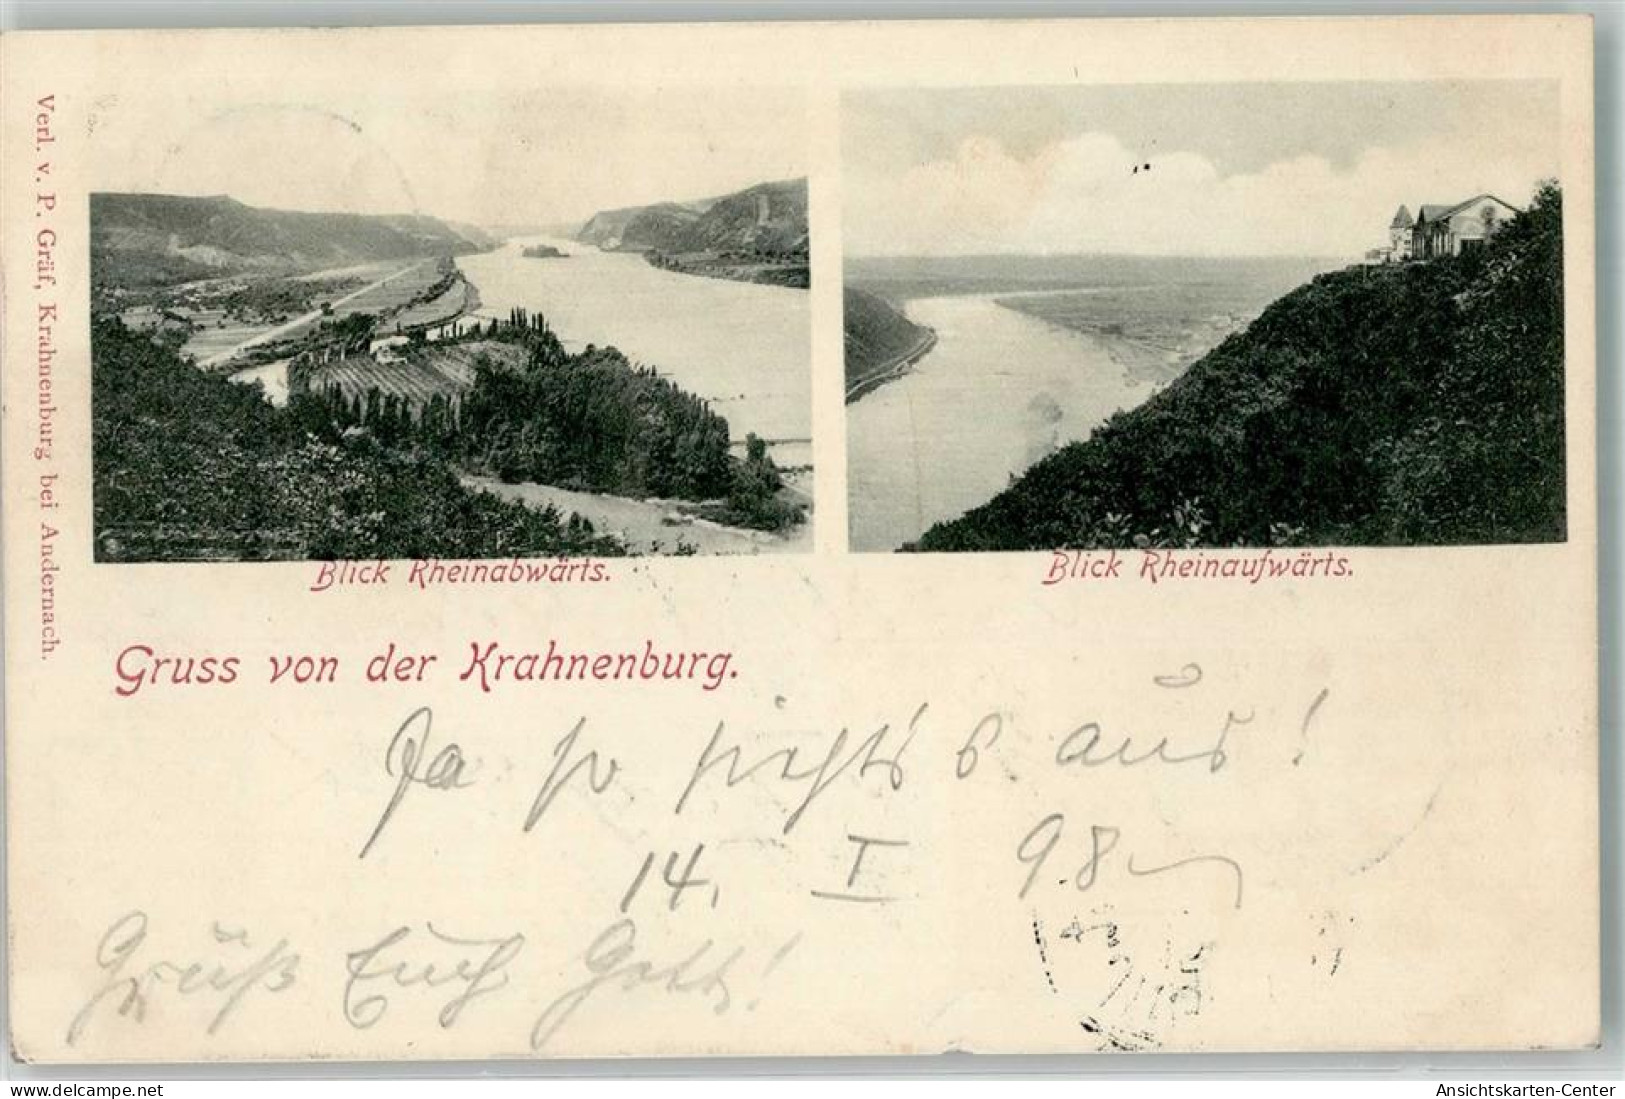 Verl. v. P. Gräf, Krahnenburg bei Andernach.
Blick Rheinabwärts.
Blick Rheinaufwärts.
Gruss von der Krahnenburg.
Ja so sieht's aus!
14. I 98
Grüß Euch Gott!
www.delcampe.net
Ansichtskarten-Center